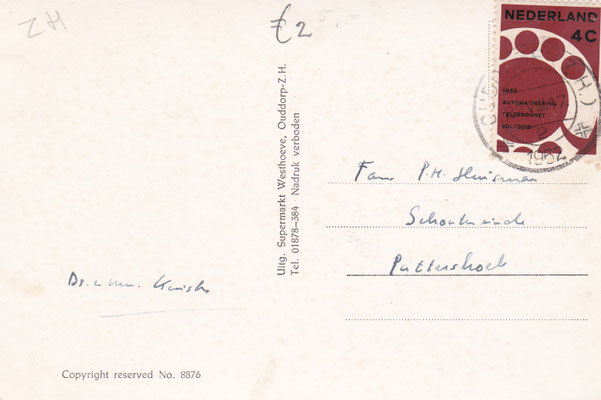 ZH
€2
5,- =
NEDERLAND
4C
1962
AUTOMATISERING
TELEFOONNET
VOLTOOID
1962
Uitg. Supermarkt Westhoeve, Ouddorp-Z.H.
Tel. 01878-384 Nadruk verboden
Fam P.H. Huisman
Schouteneinde
Puttershoek
Copyright reserved No. 8876